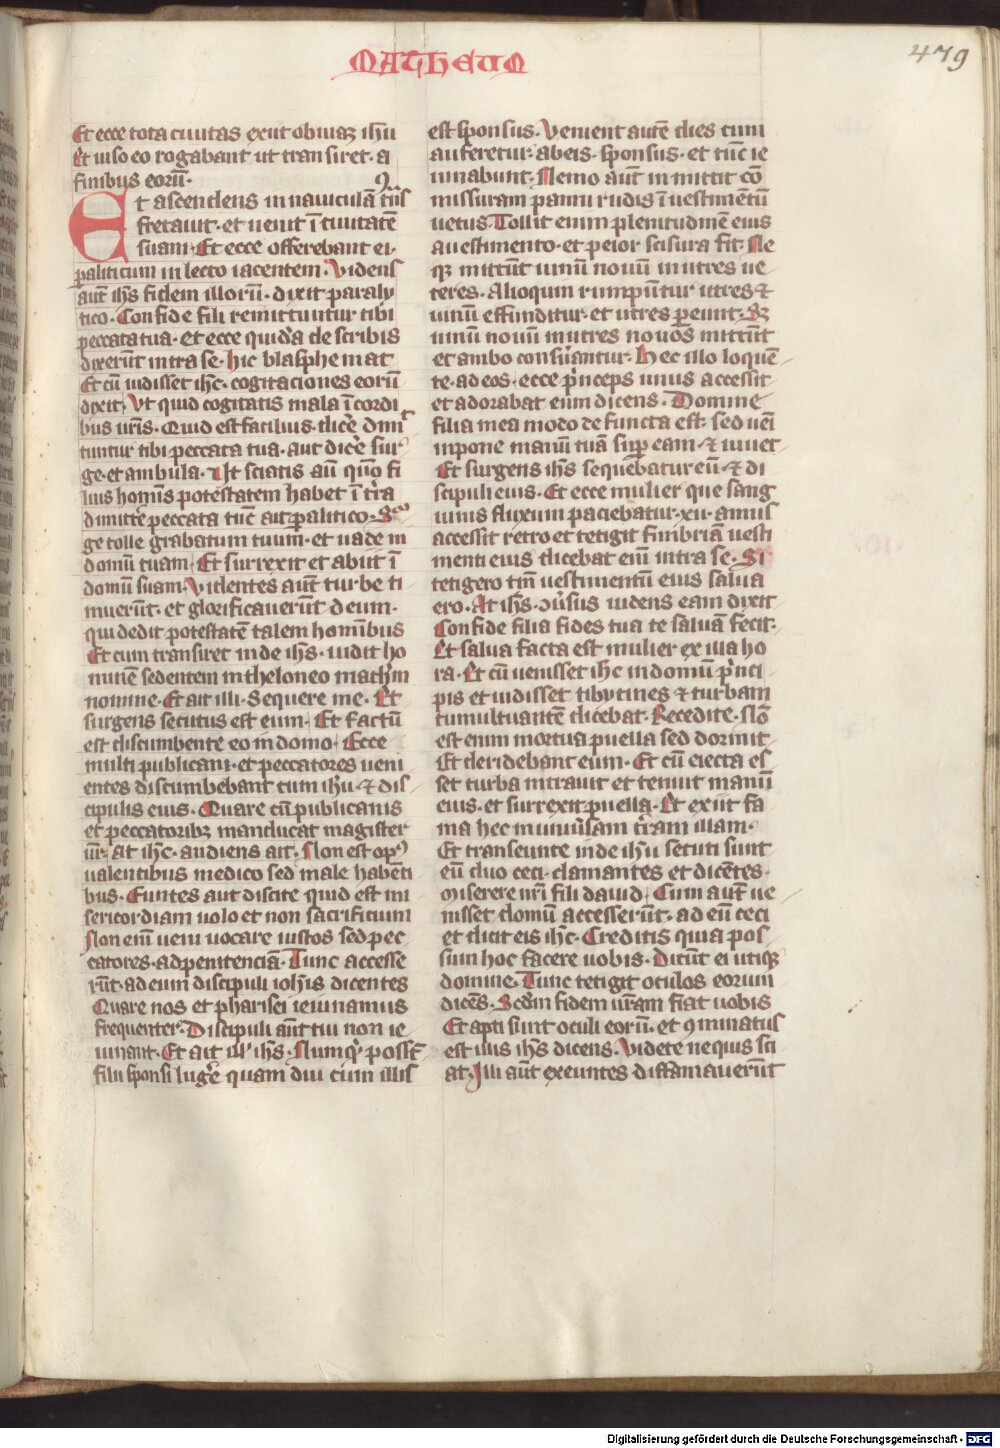 Matheum
479
Et ecce tota ciuitas exiit obuiaꝫ ihū
Et uiso eo rogabant ut transiret· a
finibus eorū·
Et ascendens in nauiculā tͥns
fretauit· et uenit ī ciuitatē
suam· Et ecce offerebant ei·
paliticum in lecto iacentem· Videns
aūt ihs fidem illorū· dixit paraly
tico· Confide fili remittuntur tibi
peccata tua· et ecce quidā de scribis
dixerūt intra se· hic blasphemat
Et cū uidisset ihc· cogitaciones eorū
dixit· Vt quid cogitatis mala ī cordi
bus ur̄is· Quid est facilius· dicē dimit
tuntur tibi peccata tua· aut dicē sur
ge· et ambula· Vt sciatis aū qm̄o fi
lius homīs potestatem habet ī tr̄a
dimittē peccata tūc ait palitico· Sur
ge tolle grabatum tuum· et uade in
domū tuam· Et surrexit et abiit ī
domū suam· Videntes aūt turbe ti
muerūt· et glorificauerūt deum·
qui dedit potestatē talem hominibus
Et cum transiret inde ihs· uidit ho
minē sedentem in theloneo mathm̄
nomine· Et ait illi· Sequere me· Et
surgens secutus est eum· Et factū
est discumbente eo in domo· Ecce
multi publicani· et peccatores ueni
entes discumbebant cum ihu· ⁊ dis
cipulis eius· Quare cū publicanis
et peccatoribꝫ manducat magister
ur̄· at ihc· audiens ait· Non est opꝰ
ualentibus medico sed male habēti
bus· Euntes aut discite quid est mi
sericordiam uolo et non sacrificium
Non em̄ ueni uocare iustos sed pec
catores· ad penitenciā· Tunc accesse
rūt· ad eum discipuli ioh̄is dicentes
Quare nos et pharisei ieiunamus
frequenter· Discipuli aūt tui non ie
iunant· Et ait ill' ihs· Numqͥ possūt
filii sponsi lugēe quam diu cum illis
est sponsus· Venient autē dies cum
auferetur· ab eis· sponsus· et tūc ie
iunabunt· Nemo aūt inmittit cō
missuram panni rudis ī uestimētū
uetus· Tollit enim plenitudinē eius
a uestimento· et peior scisura fit· Ne
qꝫ mittūt uinū nouū in utres ue
teres· Alioquin rumpūtur utres ⁊
uinū effunditur· et utres peunt· Sꝫ
uinū nouū in utres nouos mittūt
et ambo conseruantur· Hec illo loquē
te· ad eos· ecce pͥnceps unus accessit
et adorabat eum dicens· Domine
filia mea modo defuncta est· sed uei
inpone manū tuā supͥ eam· ⁊ uiuet
Et surgens ihs sequebatur eū· ⁊ di
scipuli eius· Et ecce mulier que sang
uinis fluxum paciebatur· xii· annis
accessit retro et tetigit fimbriā uesti
menti eius dicebat em̄ intra se· Si
tetigero tm̄ uestimentū eius salua
ero· At ihs· ↄuersus uidens eam dixit
Confide filia fides tua te saluā fecit·
Et salua facta est mulier ex illa ho
ra· Et cū uenisset ihc in domū pͥnci
pis et uidisset tibycines ⁊ turbam
tumultuantē dicebat· Recedite· Nō
est enim mortua puella sed dormit
Et deridebant eum· Et cū eiecta es
set turba intrauit et tenuit manū
eius· et surrexit puella· Et exiit fa
ma hec in uniuersam tr̄am illam·
Et transeunte inde ihu secuti sunt
eū duo ceci· clamantes et dicētes·
Miserere nr̄i fili dauid· Cum aūt ue
nisset domū accesserūt· ad eū ceci
et dicit eis ihc· Creditis quia pos
sum hoc facere uobis· Dicūt ei utiqꝫ
domine· Tunc tetigit oculos eorum
dicēs· Scdm̄ fidem ur̄am fiat uobis
Et apti sunt oculi eorū· et ꝯminatus
est illis ihs dicens· Videte ne quis sci
at· Illi aūt exeuntes diffamauerūt
Digitalisierung gefördert durch die Deutsche Forschungsgemeinschaft - DFG